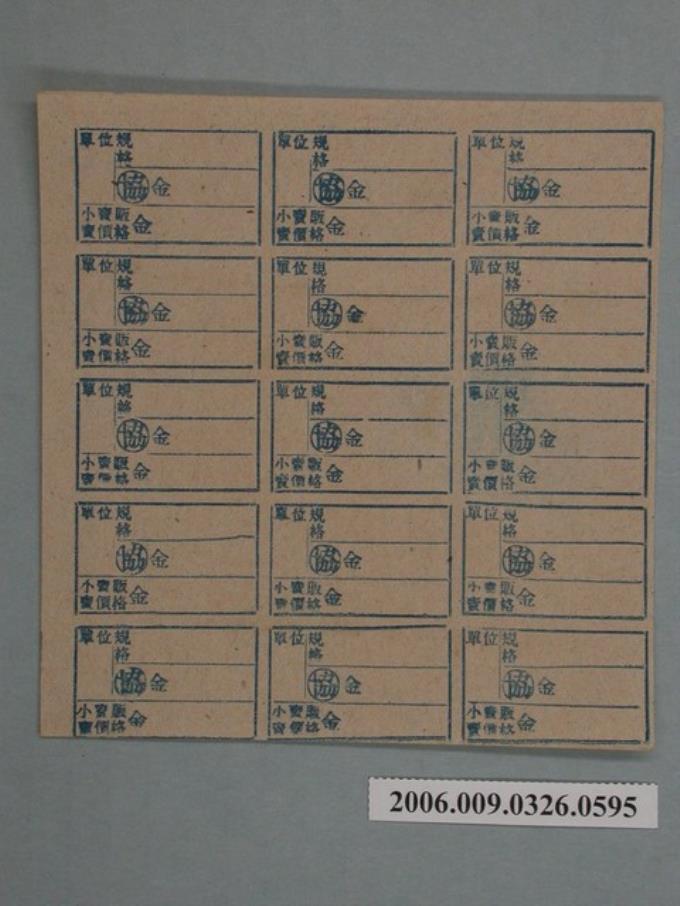 單位 規格 單位 規格 單位 規格
協 金 協 金 協 金
小賣販 金 小賣販 金 小賣販 金
賣價格 賣價格 賣價格
單位 規格 單位 規格 單位 規格
協 金 協 金 協 金
小賣販 金 小賣販 金 小賣販 金
賣價格 賣價格 賣價格
單位 規格 單位 規格 單位 規格
協 金 協 金 協 金
小賣販 金 小賣販 金 小賣販 金
賣價格 賣價格 賣價格
單位 規格 單位 規格 單位 規格
協 金 協 金 協 金
小賣販 金 小賣販 金 小賣販 金
賣價格 賣價格 賣價格
單位 規格 單位 規格 單位 規格
協 金 協 金 協 金
小賣販 金 小賣販 金 小賣販 金
賣價格 賣價格 賣價格
2006.009.0326.0595